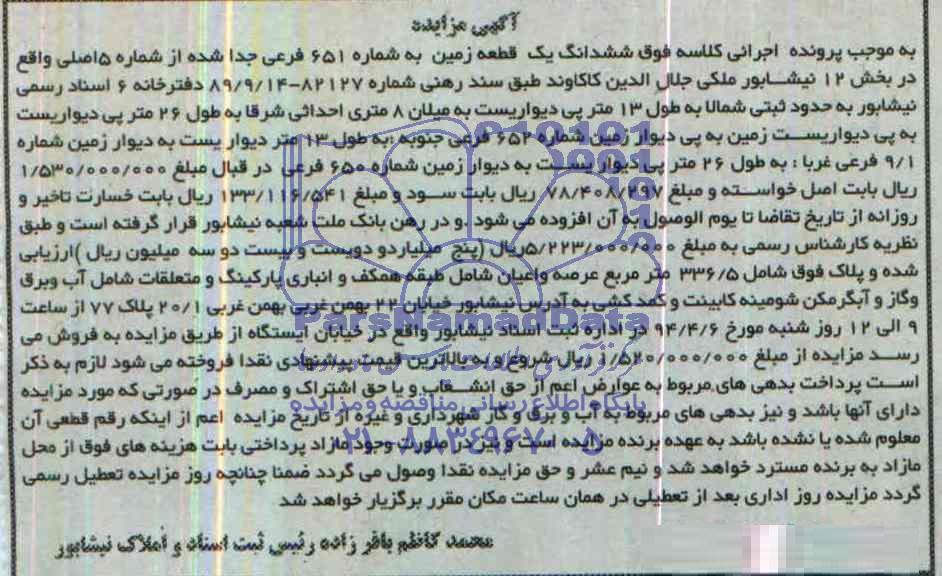 آگهی مزایده
به موجب پرونده اجرائی کلاسه فوق ششدانگ یک قطعه زمین به شماره ۶۵۱ فرعی جدا شده از شماره ۵اصلی واقع
در بخش ۱۲ نیشابور ملکی جلال الدین کاکاوند طبق سند رهنی شماره ۸۲۱۲۷-۸۹/۹/۱۴ دفترخانه ۶ اسناد رسمی
نیشابور به حدود ثبتی شمالا به طول ۱۳ متر پی دیواریست به میلان ۸ متری احداثی شرقا به طول ۲۶ متر پی دیواریست
به پی دیواریست زمین به پی دیوار زمین شماره ۶۵۲ فرعی جنوبه :به طول ۱۳ متر دیوار یست به دیوار زمین شماره
۹/۱ فرعی غربا : به طول ۲۶ متر پی دیواریست به دیوار زمین شماره ۶۵۰ فرعی در قبال مبلغ ۱/۵۳۰/۰۰۰/۰۰۰
ریال بابت اصل خواسته و مبلغ ۷۸/۴۰۸/۲۹۷ ریال بابت سود و مبلغ ۱۳۳/۱۱۶/۵۴۱ ریال بابت خسارت تاخیر و
روزانه از تاریخ تقاضا تا یوم الوصول به آن افزوده می شود) و در رهن بانک ملت شعبه نیشابور قرار گرفته است و طبق
نظریه کارشناس رسمی به مبلغ ۵/۲۲۳/۰۰۰/۰۰۰ریال (پنج میلیاردو دویست و بیست دو سه میلیون ریال )ارزیابی
شده و پلاک فوق شامل ۳۳۶/۵ متر مربع عرصه واعیان شامل طبقه همکف و انباری پارکینگ و متعلقات شامل آب وبرق
وگاز و آبگرمکن شومینه کابینت و کمد کشی به آدرس نیشابور خیابان ۲۲ بهمن غربی بهمن غربی ۲۰/۱ پلاک ۷۷ از ساعت
۹ الی ۱۲ روز شنبه مورخ ۹۴/۴/۶ در اداره ثبت اسناد نیشابور واقع در خیابان ایستگاه از طریق مزایده به فروش می
رسد مزایده از مبلغ ۱/۵۲۰/۰۰۰/۰۰۰ ریال شروع و به بالاترین قیمت پیشنهادی نقدا فروخته می شود لازم به ذکر
است پرداخت بدهی های مربوط به عوارض اعم از حق انشعاب و یا حق اشتراک و مصرف در صورتی که مورد مزایده
دارای آنها باشد و نیز بدهی های مربوط به آب و برق و گاز شهرداری و غیره از تاریخ مزایده اعم از اینکه رقم قطعی آن
معلوم شده یا نشده باشد به عهده برنده مزایده است و نیز در صورت وجود مازاد پرداختی بابت هزینه های فوق از محل
مازاد به برنده مسترد خواهد شد و نیم عشر و حق مزایده نقدا وصول می گردد ضمنا چنانچه روز مزایده تعطیل رسمی
گردد مزایده روز اداری بعد از تعطیلی در همان ساعت مکان مقرر برگزیار خواهد شد
محمد کاظم باقر زاده رئیس ثبت اسناد و املاک نیشابور
ParsNamadData
پایگاه اطلاع رسانی مناقصه و مزایده
۰۲۱-۸۸۳۴۹۶۷۰-۵